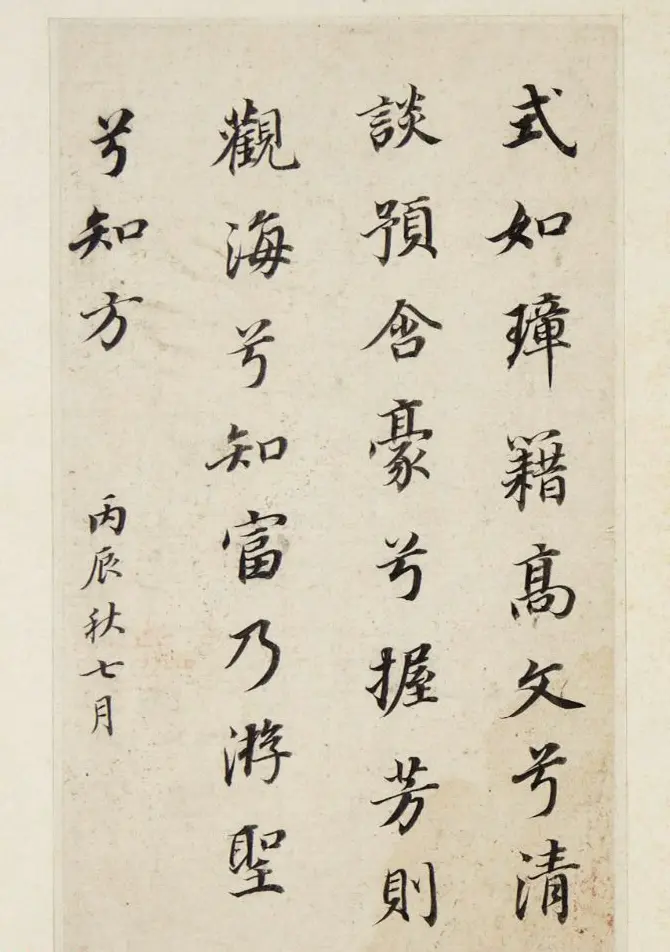 式如璋籍高文兮清
談預含豪兮握芳則
觀海兮知富乃游聖
兮知方
丙辰秋七月